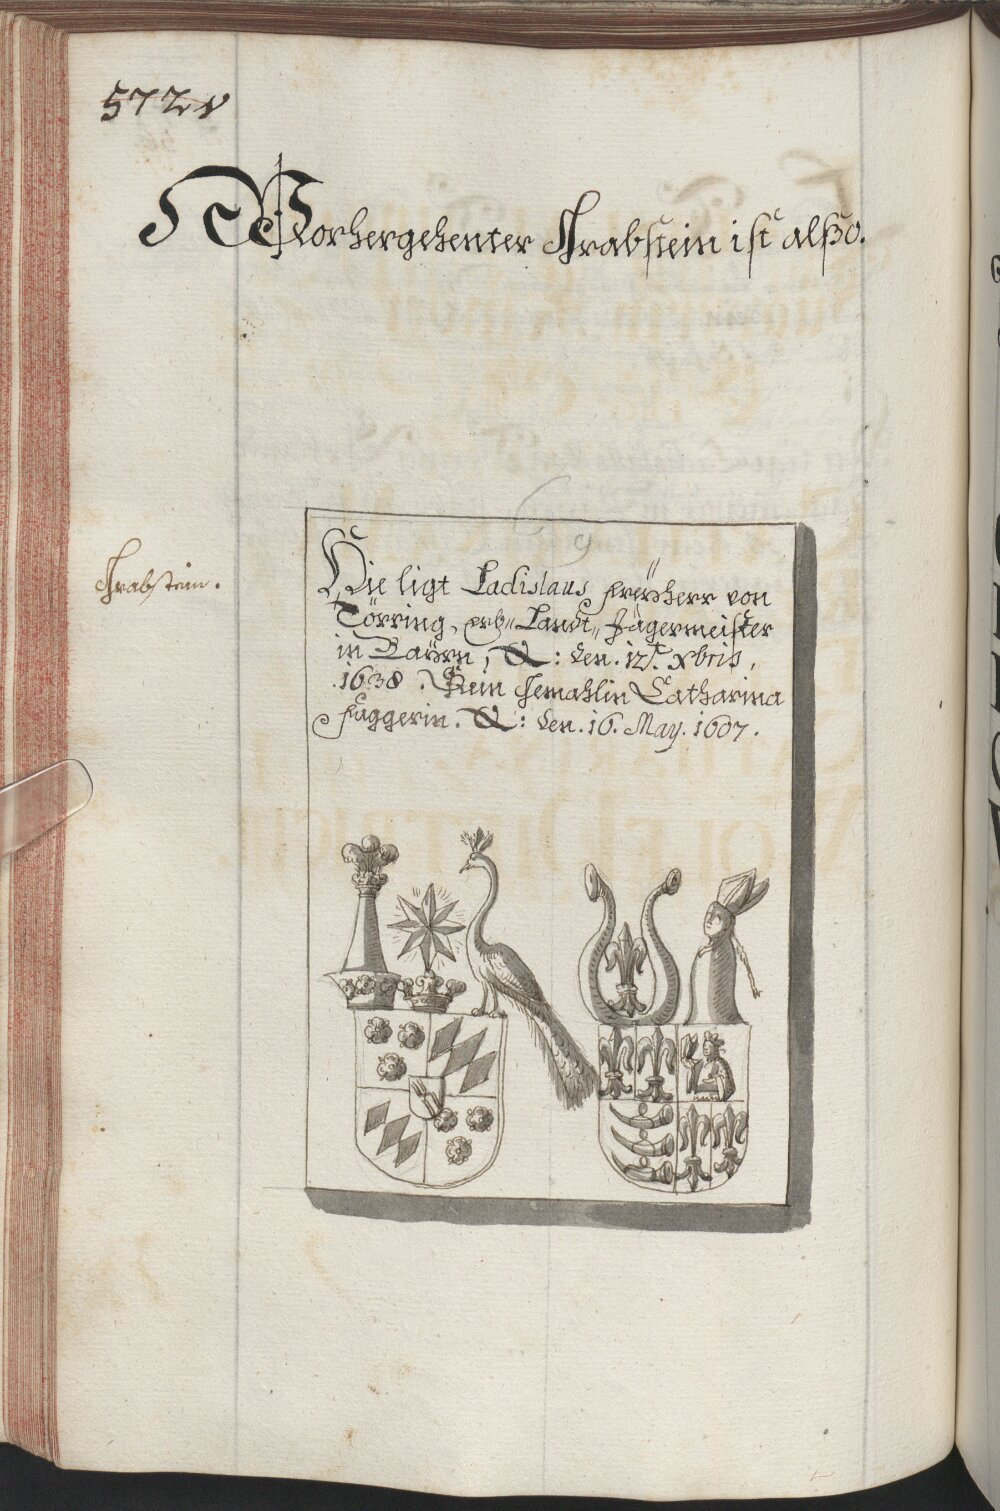 572v
Vorhergehenter Grabstein ist alßo.
Grabstein.
Hie ligt Ladislaus Freÿherr von
Törring, erb= Landt= Jägermeister
in Baÿrn, &: den. 12. Xbris,
1638. Sein Gemahlin Catharina
Fuggerin. &: den. 16. May. 1607.